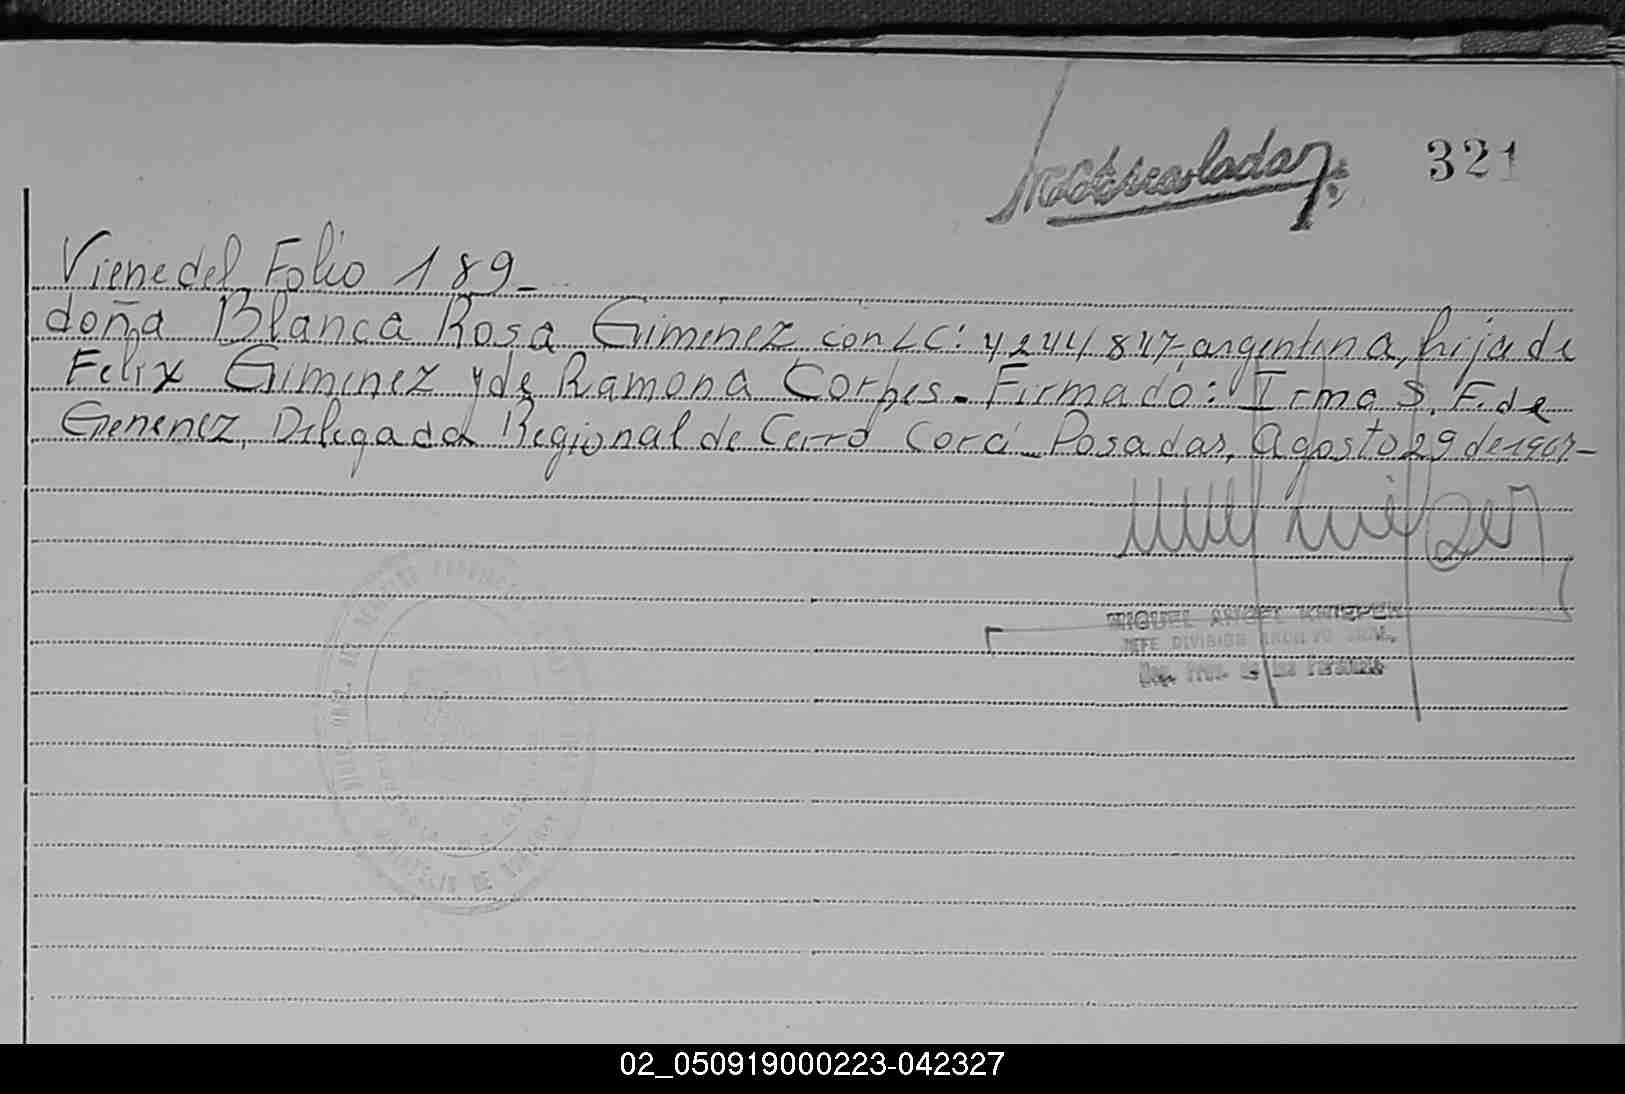 321
Viene del Folio 189_
doña Blanca Rosa Gimenez con LC: 4244847- argentina, hija de
Felix Gimenez y de Ramona Cortes. Firmado: Irma S. F. de
Gemenez, Delegada Regional de Cerro Corá_ Posadas, Agosto 29 de 1967-
MIGUEL ANGEL KNIEPER
JEFE DIVISION ARCHIVO GRAL.
Reg. Prov. de las Personas
02_050919000223-042327